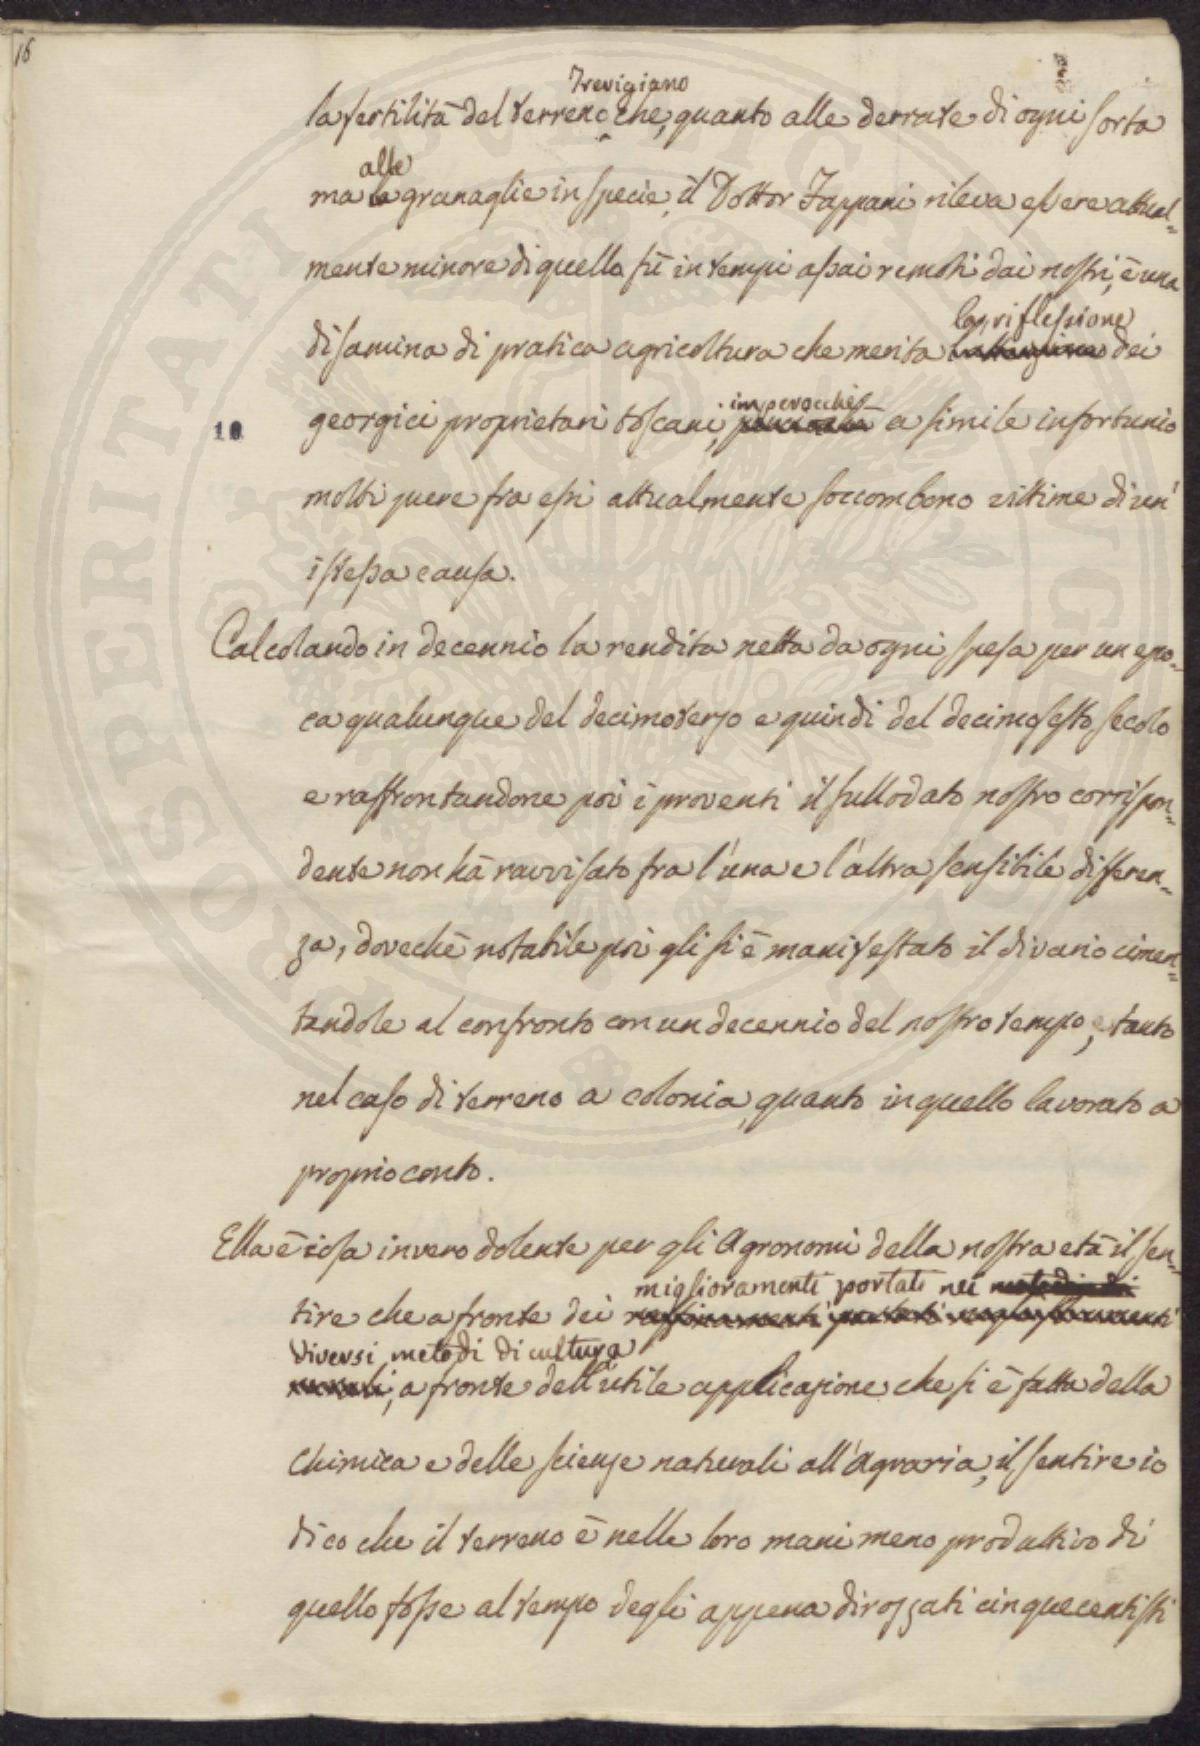 16
Trevigiano
la fertilità del terreno che, quanto alle derrate di ogni sorta
alle
ma la granaglie in specie, il Dottor Zappani rileva essere attual=
mente minore di quello fù in tempi assai remoti dai nostri, è una
la riflessione
disamina di pratica agricoltura che merita l'attenzione dei
imperocchè
georgici proprietari toscani, a simile infortunio
10
molti pure fra essi attualmente soccombono vittime di un'
istessa causa.
Calcolando in decennio la rendita netta da ogni spesa per un epo=
ca qualunque del decimoterzo e quindi del decimosesto secolo
e raffrontandone poi i proventi il sullodato nostro corrispon=
dente non hà ravvisato fra l'una e l'altra sensibile differen=
za, dovechè notabile poi gli si è manifestato il divario cimen=
tandole al confronto con un decennio del nostro tempo, e tanto
nel caso di terreno a colonia, quanto in quello lavorato a
proprio conto.
Ella è cosa invero dolente per gli Agronomi della nostra età il sen=
miglioramenti portati nei metodi di
tire che a fronte dei raffinamenti portati negli strumenti
diversi metodi di cultura
rurali, a fronte dell'utile applicazione che si è fatta della
Chimica e delle scienze naturali all'Agraria, il sentire io
dico che il terreno è nelle loro mani meno produttivo di
quello fosse al tempo degli appena dirozzati cinquecentisti